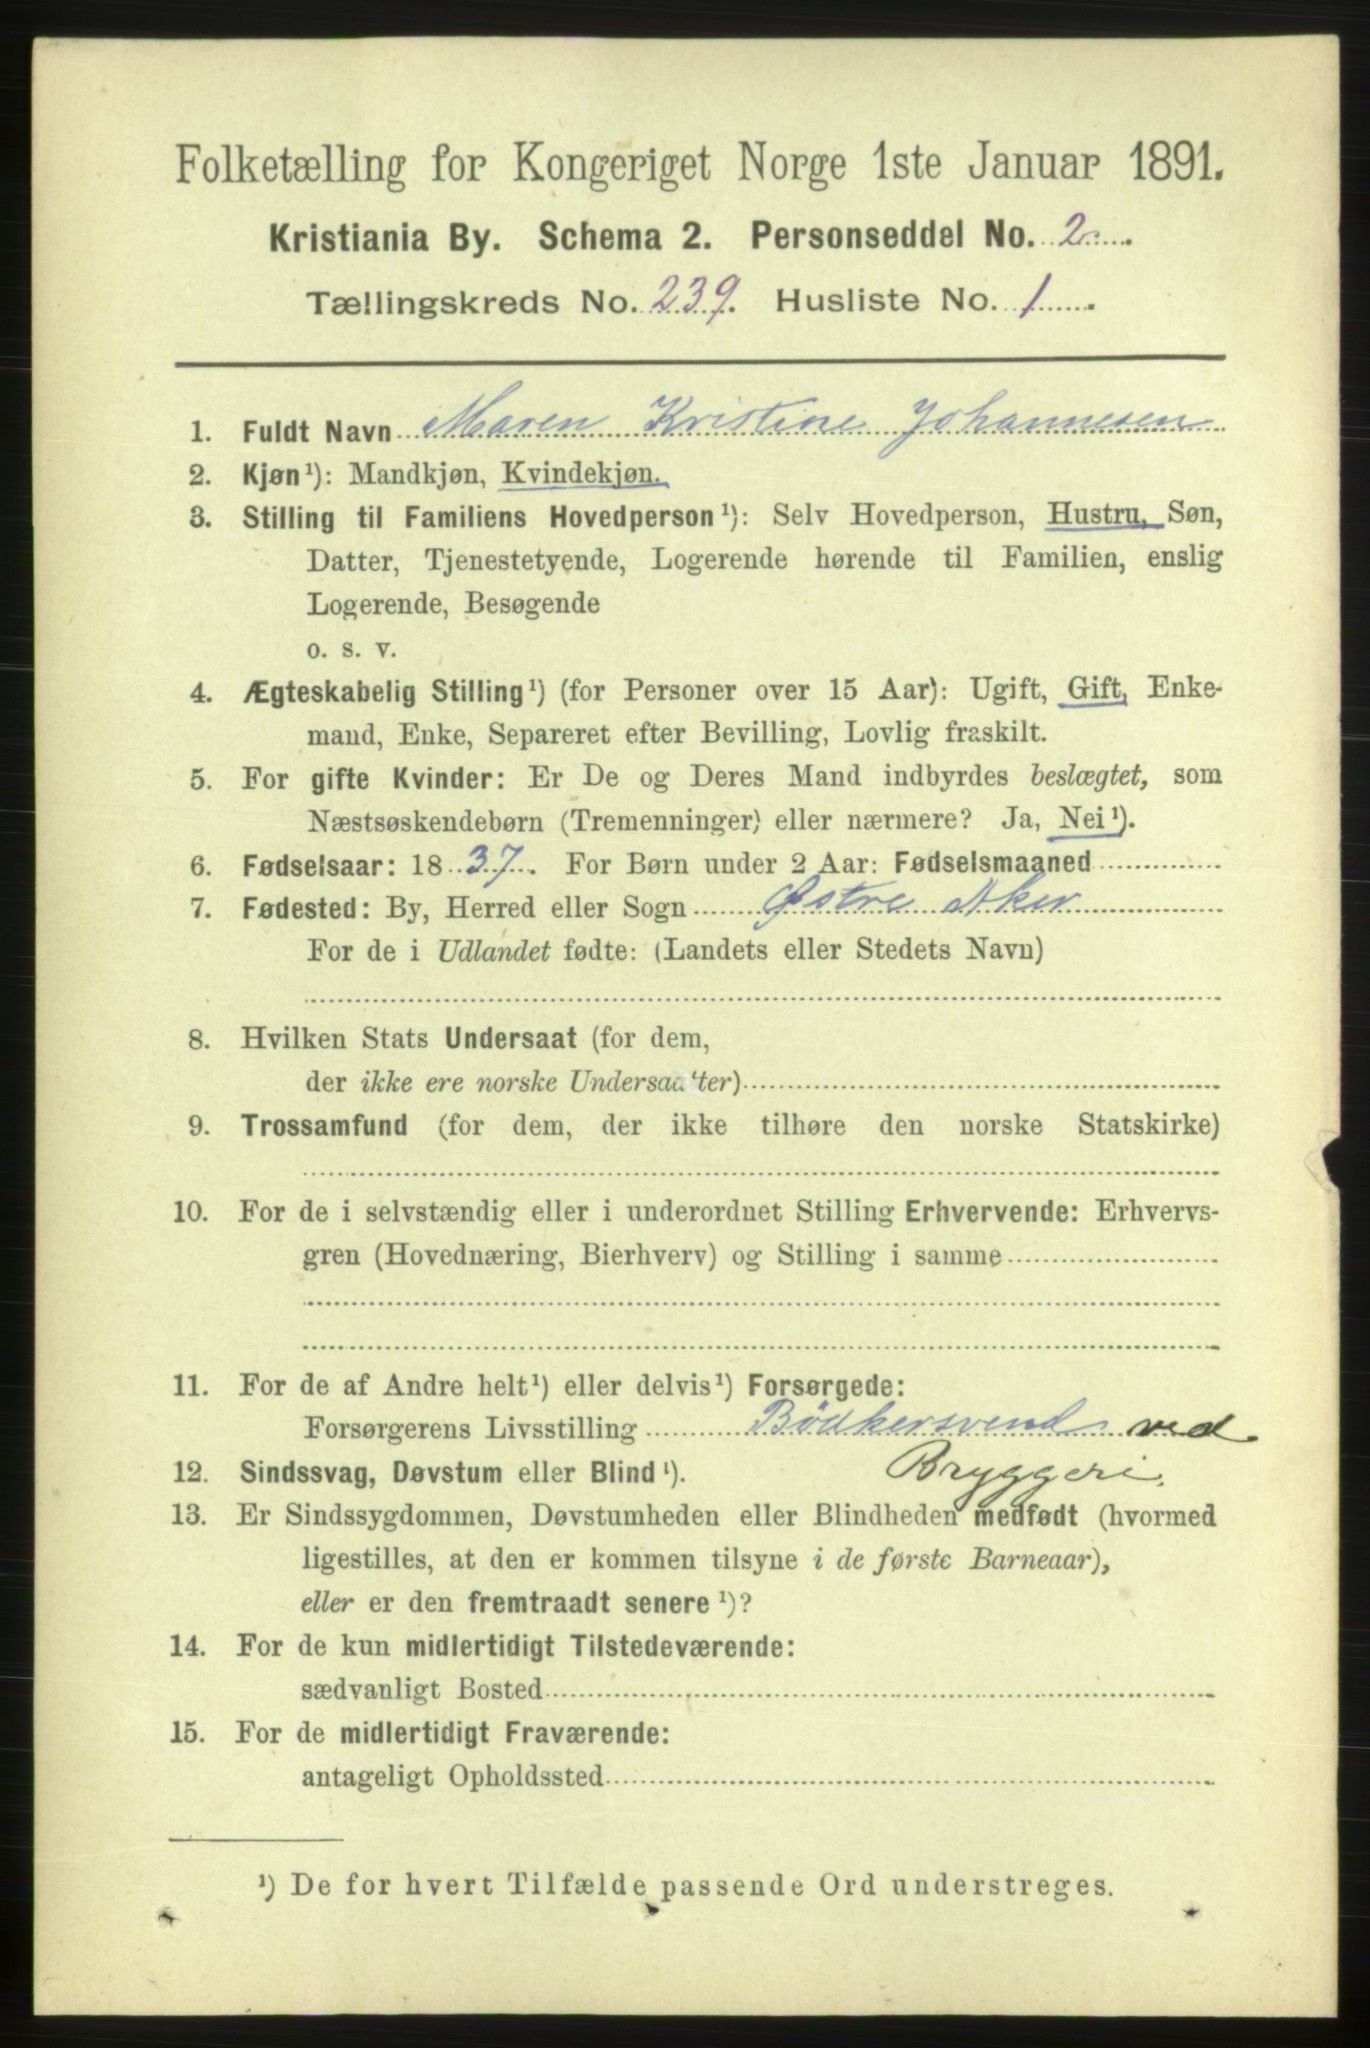 Folketælling for Kongeriget Norge 1ste Januar 1891.
Kristiania By. Schema 2. Personseddel No. 2.
Tællingskreds No. 239. Husliste No. 1
1. Fuldt Navn Maren Kristine Johannesen
2. Kjøn¹): Mandkjøn, Kvindekjøn.
3. Stilling til Familiens Hovedperson¹): Selv Hovedperson, Hustru, Søn,
Datter, Tjenestetyende, Logerende hørende til Familien, enslig
Logerende, Besøgende
o. s. v.
4. Ægteskabelig Stilling¹) (for Personer over 15 Aar): Ugift, Gift, Enke-
mand, Enke, Separeret efter Bevilling, Lovlig fraskilt.
5. For gifte Kvinder: Er De og Deres Mand indbyrdes beslægtet, som
Næstsøskendebørn (Tremenninger) eller nærmere? Ja, Nei¹).
6. Fødselsaar: 1837. For Børn under 2 Aar: Fødselsmaaned
7. Fødested: By, Herred eller Sogn Østre Aker
For de i Udlandet fødte: (Landets eller Stedets Navn)
8. Hvilken Stats Undersaat (for dem,
der ikke ere norske Undersaatter)
9. Trossamfund (for dem, der ikke tilhøre den norske Statskirke)
10. For de i selvstændig eller i underordnet Stilling Erhvervende: Erhvervs-
gren (Hovednæring, Bierhverv) og Stilling i samme
11. For de af Andre helt¹) eller delvis¹) Forsørgede:
Forsørgerens Livsstilling Bödkersvend ved
12. Sindssvag, Døvstum eller Blind¹). Bryggeri.
13. Er Sindssygdommen, Døvstumheden eller Blindheden medfødt (hvormed
ligestilles, at den er kommen tilsyne i de første Barneaar),
eller er den fremtraadt senere¹)?
14. For de kun midlertidigt Tilstedeværende:
sædvanligt Bosted
15. For de midlertidigt Fraværende:
antageligt Opholdssted
¹) De for hvert Tilfælde passende Ord understreges.